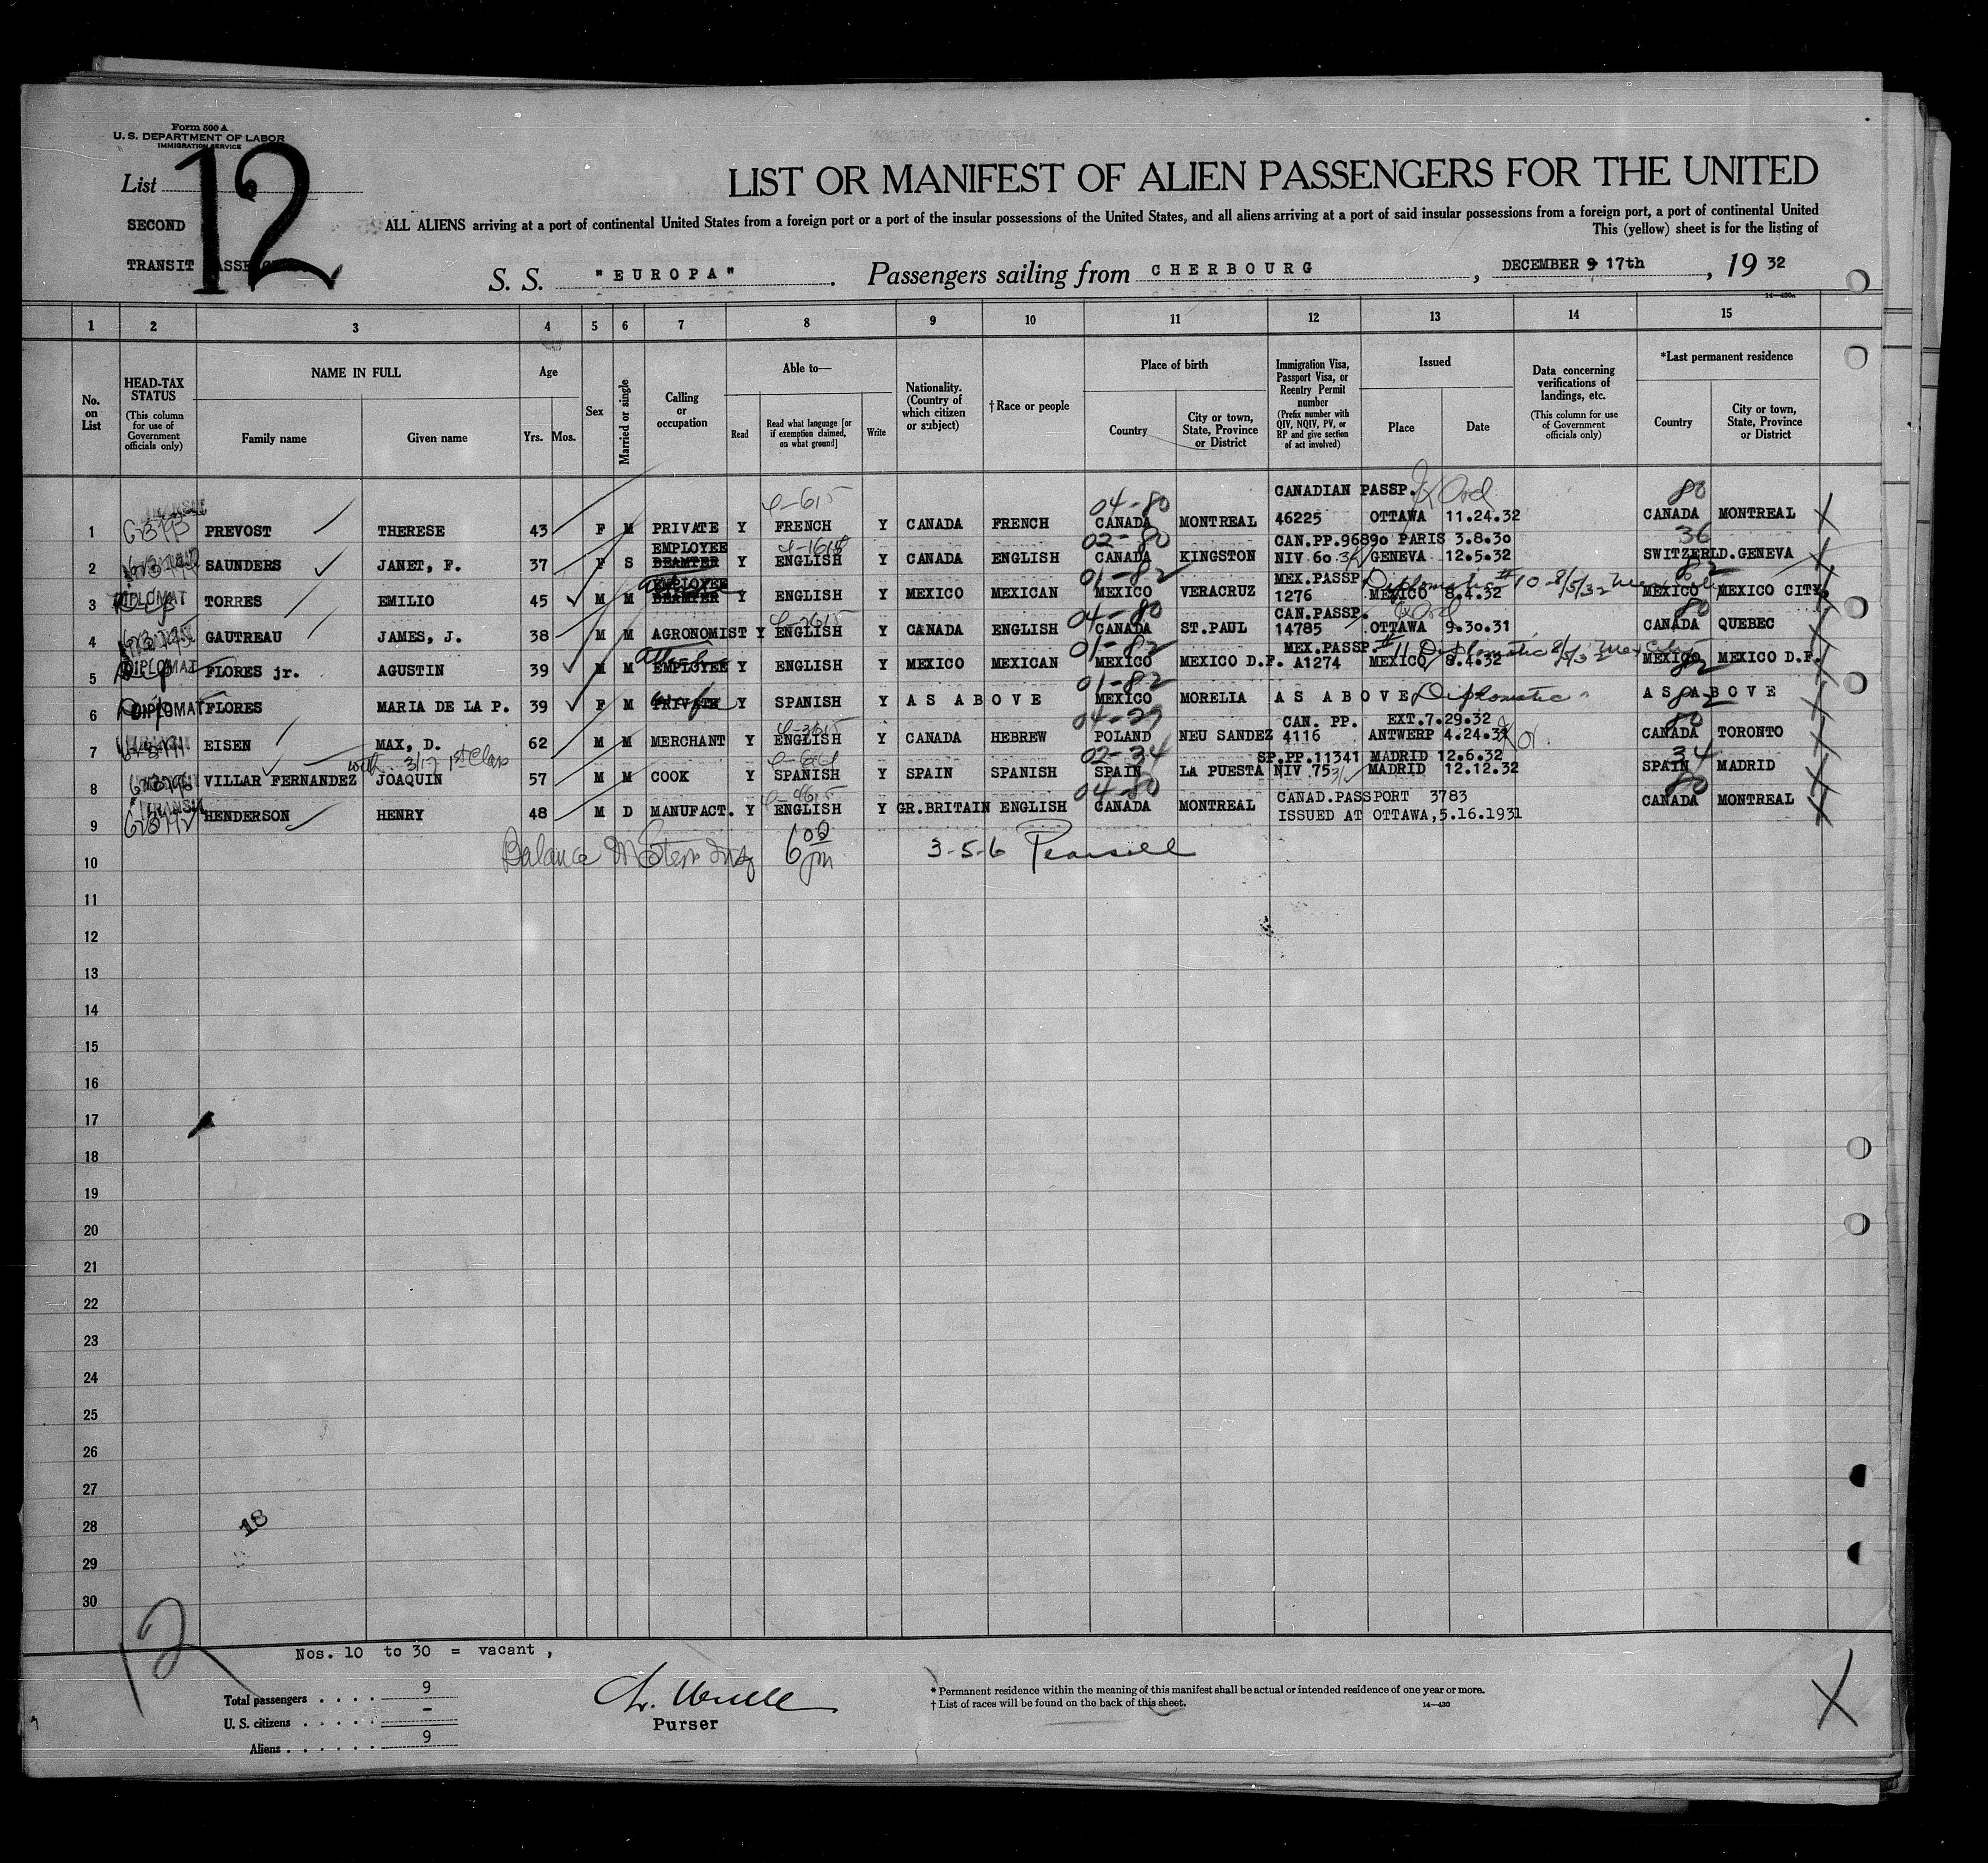 Form 500 A
U. S. DEPARTMENT OF LABOR
IMMIGRATION SERVICE
List 12
LIST OR MANIFEST OF ALIEN PASSENGERS FOR THE UNITED
SECOND
ALL ALIENS arriving at a port of continental United States from a foreign port or a port of the insular possessions of the United States, and all aliens arriving at a port of said insular possessions from a foreign port, a port of continental United
This (yellow) sheet is for the listing of
TRANSIT PASSENG
S. S. "EUROPA". Passengers sailing from CHERBOURG, DECEMBER 9 17th, 19 32
14—430a
1 2 3 4 5 6 7 8 9 10 11 12 13 14 15
No. on List
HEAD-TAX STATUS (This column for use of Government officials only)
NAME IN FULL
Family name
Given name
Age
Yrs. Mos.
Sex
Married or single
Calling or occupation
Able to—
Read
Read what language [or if exemption claimed, on what ground]
Write
Nationality. (Country of which citizen or subject)
† Race or people
Place of birth
Country
City or town, State, Province or District
Immigration Visa, Passport Visa, or Reentry Permit number (Prefix number with QIV, NQIV, PV, or RP and give section of act involved)
Issued
Place
Date
Data concerning verifications of landings, etc. (This column for use of Government officials only)
*Last permanent residence
Country
City or town, State, Province or District
04-80 CANADIAN PASSP. 80
1 TRANSIT PREVOST THERESE 43 F M PRIVATE Y FRENCH Y CANADA FRENCH CANADA MONTREAL 46225 OTTAWA 11.24.32 CANADA MONTREAL
EMPLOYEE 02-80 CAN.PP.96890 PARIS 3.8.30 36
2 SAUNDERS JANET, F. 37 F S BEAMTER Y ENGLISH Y CANADA ENGLISH CANADA KINGSTON NIV 60 GENEVA 12.5.32 SWITZERLD.GENEVA
EMPLOYEE 01-82 MEX.PASSP. Diplomatic #10 8/5/32 82
3 DIPLOMAT TORRES EMILIO 45 M M BEAMTER Y ENGLISH Y MEXICO MEXICAN MEXICO VERACRUZ 1276 MEXICO 8.4.32 MEXICO MEXICO CITY
04-80 CAN.PASSP. 80
4 GAUTREAU JAMES, J. 38 M M AGRONOMIST Y ENGLISH Y CANADA ENGLISH CANADA ST.PAUL 14785 OTTAWA 9.30.31 CANADA QUEBEC
01-82 MEX.PASSP. #11 Diplomatic 8/5/32 Mex City
5 DIPLOMAT FLORES jr. AGUSTIN 39 M M EMPLOYEE Y ENGLISH Y MEXICO MEXICAN MEXICO MEXICO D.F. A1274 MEXICO 8.4.32 MEXICO MEXICO D.F.
01-82 82
6 DIPLOMAT FLORES MARIA DE LA P. 39 F M PRIVATE Y SPANISH Y AS ABOVE MEXICO MORELIA AS ABOVE Diplomatic AS ABOVE
04-29 CAN. PP. EXT.7.29.32 80
7 EISEN MAX, D. 62 M M MERCHANT Y ENGLISH Y CANADA HEBREW POLAND NEU SANDEZ 4116 ANTWERP 4.24.3 CANADA TORONTO
with 3/17 1st Class 02-34 SP.PP.11341 MADRID 12.6.32 34
8 VILLAR FERNANDEZ JOAQUIN 57 M M COOK Y SPANISH Y SPAIN SPANISH SPAIN LA PUESTA NIV 75 MADRID 12.12.32 SPAIN MADRID
04-80 80
9 TRANSIT HENDERSON HENRY 48 M D MANUFACT. Y ENGLISH Y GR.BRITAIN ENGLISH CANADA MONTREAL CANAD.PASSPORT 3783 CANADA MONTREAL
ISSUED AT OTTAWA,5.16.1931
10 Balance 6 00 pm 3-5-6
11
12
13
14
15
16
17
18
19
20
21
22
23
24
25
26
27
28
18
29
30
12
Nos. 10 to 30 = vacant ,
Total passengers . . . . 9
U. S. citizens . . . . . -
Aliens . . . . . . 9
Purser
* Permanent residence within the meaning of this manifest shall be actual or intended residence of one year or more.
† List of races will be found on the back of this sheet. 14—430
X